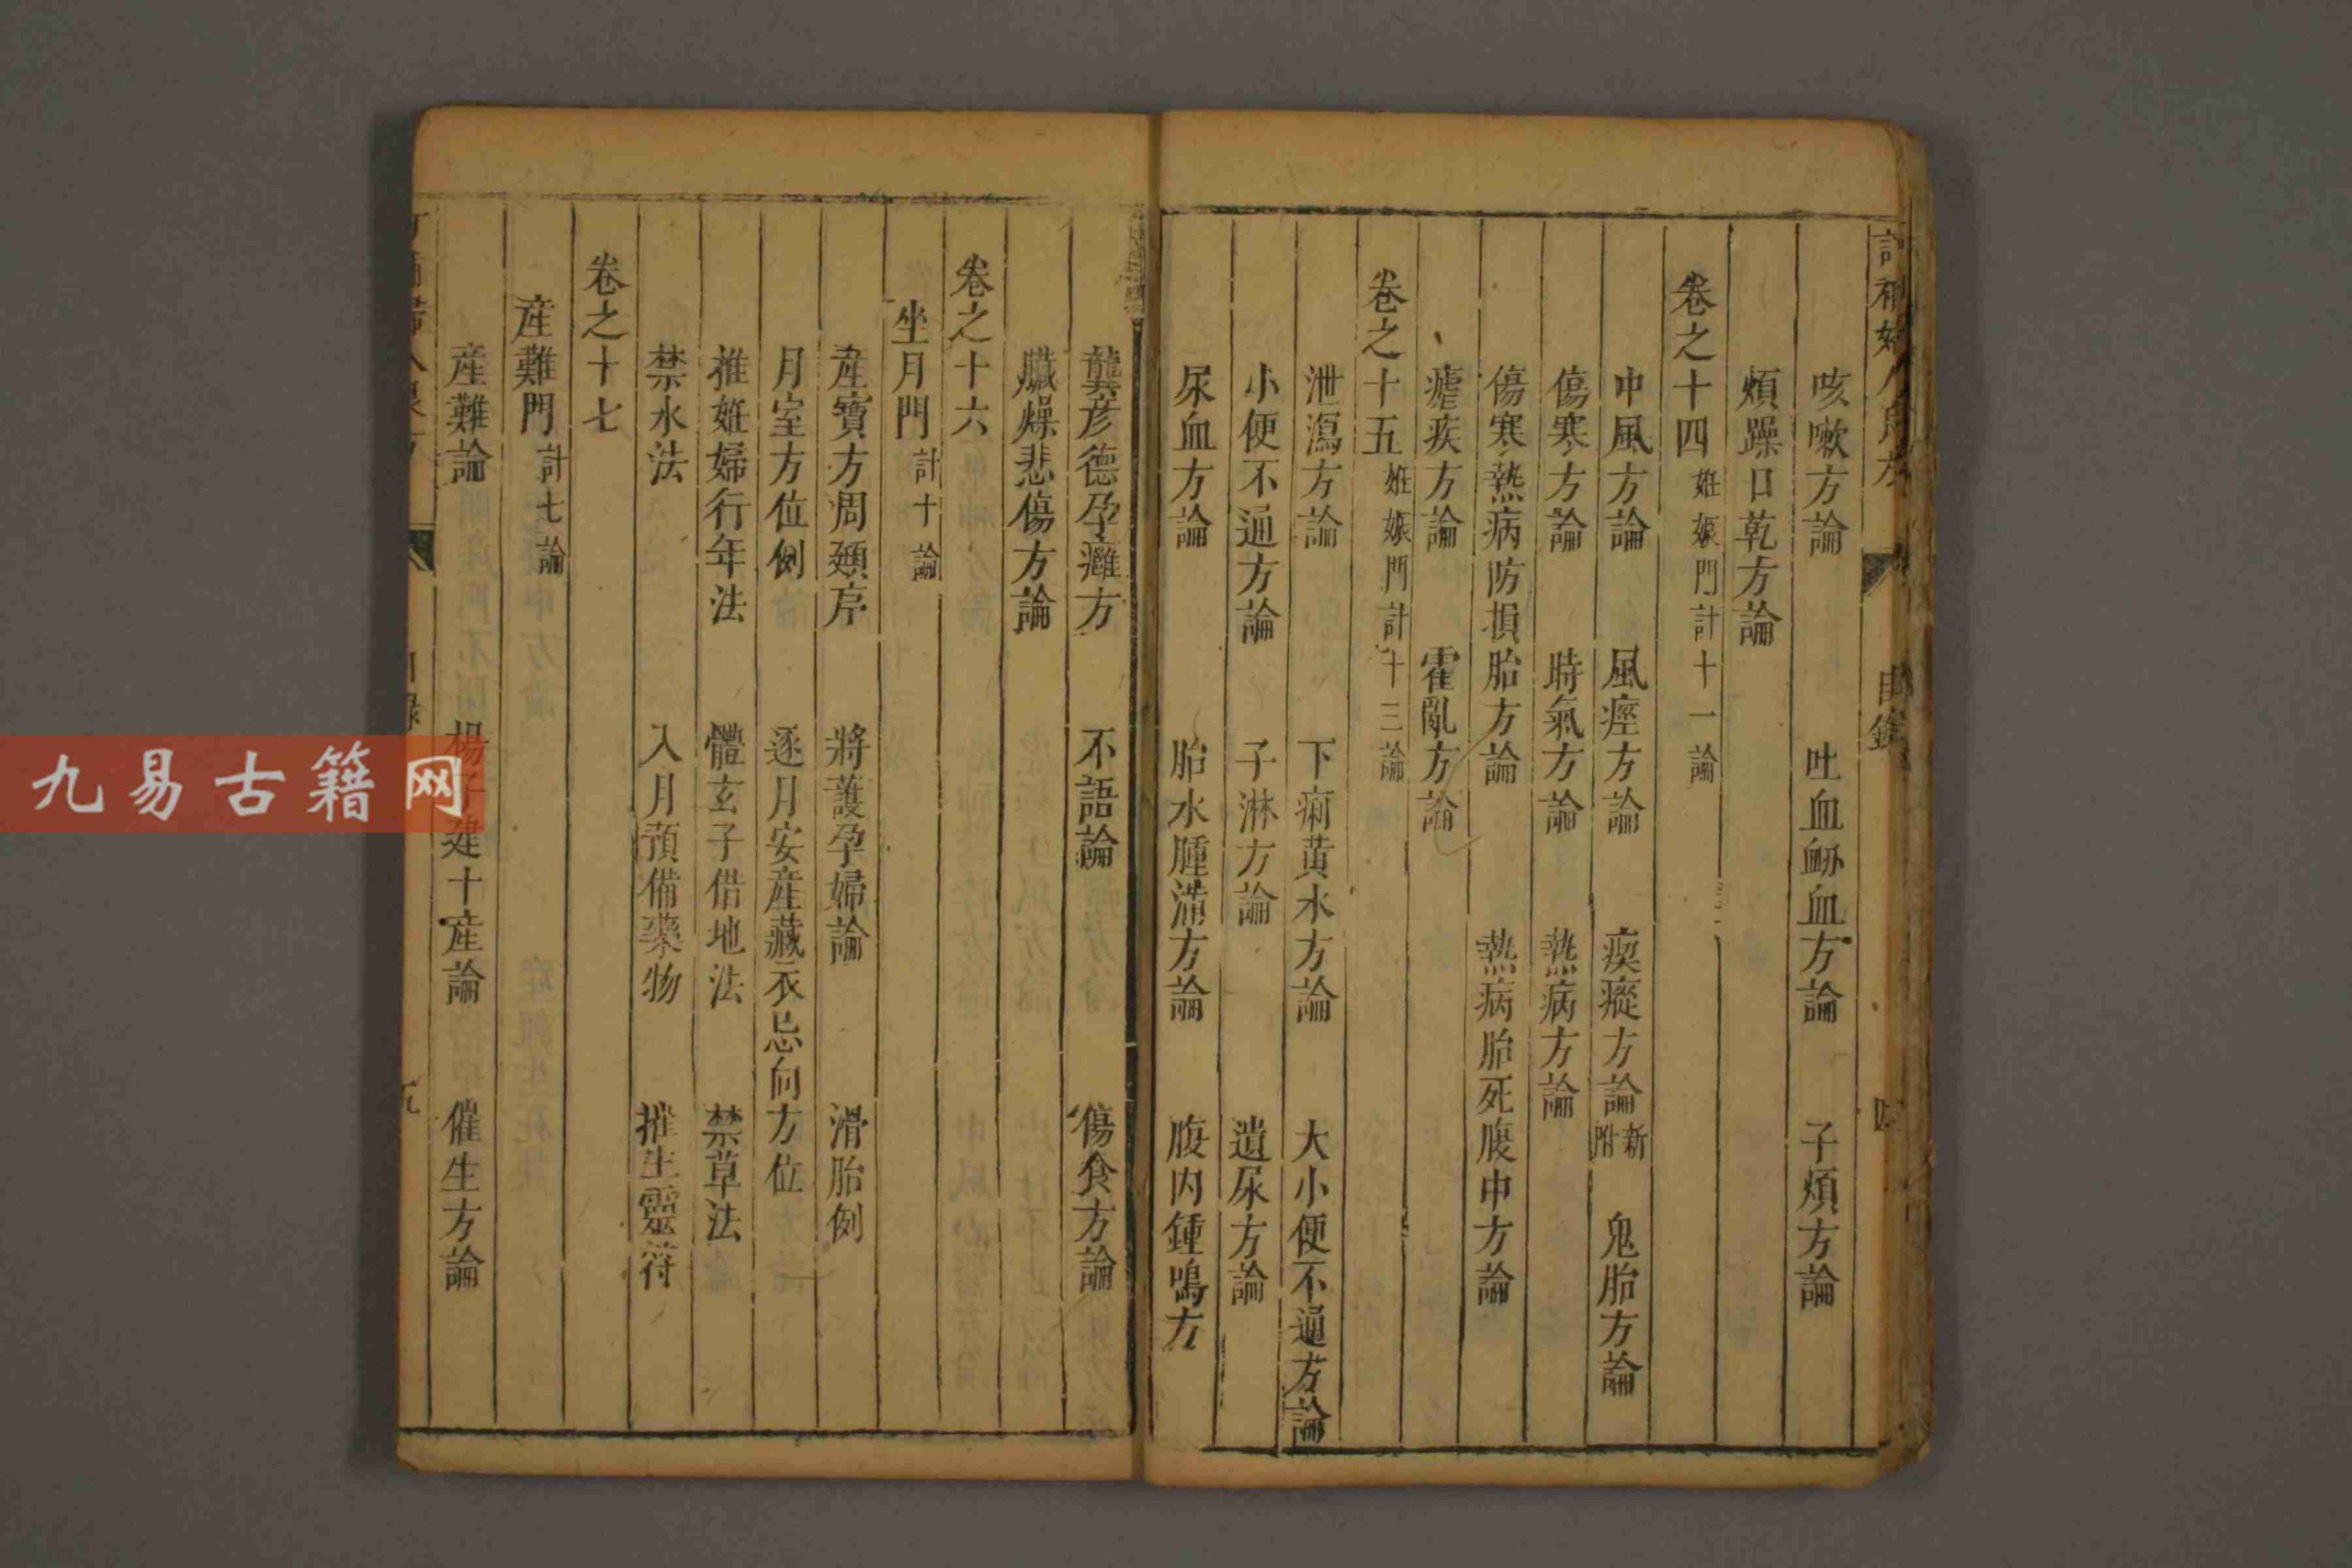 咳嗽方論 吐血衂血方論 子煩方論
煩躁口乾方論
卷之十四 姙娠門計十一論
中風方論 風痙方論 瘈瘲方論新附 鬼胎方論
傷寒方論 時氣方論 熱病方論
傷寒熱病防損胎方論 熱病胎死腹中方論
瘧疾方論 霍亂方論
卷之十五 姙娠門計十三論
泄瀉方論 下痢黃水方論 大小便不通方論
小便不通方論 子淋方論 遺尿方論
尿血方論 胎水腫滿方論 腹內鍾鳴方
龔彥德孕癰方 不語論 傷食方論
臟燥悲傷方論
卷之十六
坐月門 計十論
產寶方周頲序 將護孕婦論 滑胎例
月室方位例 逐月安產藏衣忌向方位
推姙婦行年法 體玄子借地法 禁草法
禁水法 入月預備藥物 摧生靈符
卷之十七
產難門 計七論
產難論 楊子建十產論 催生方論
目錄
九易古籍网